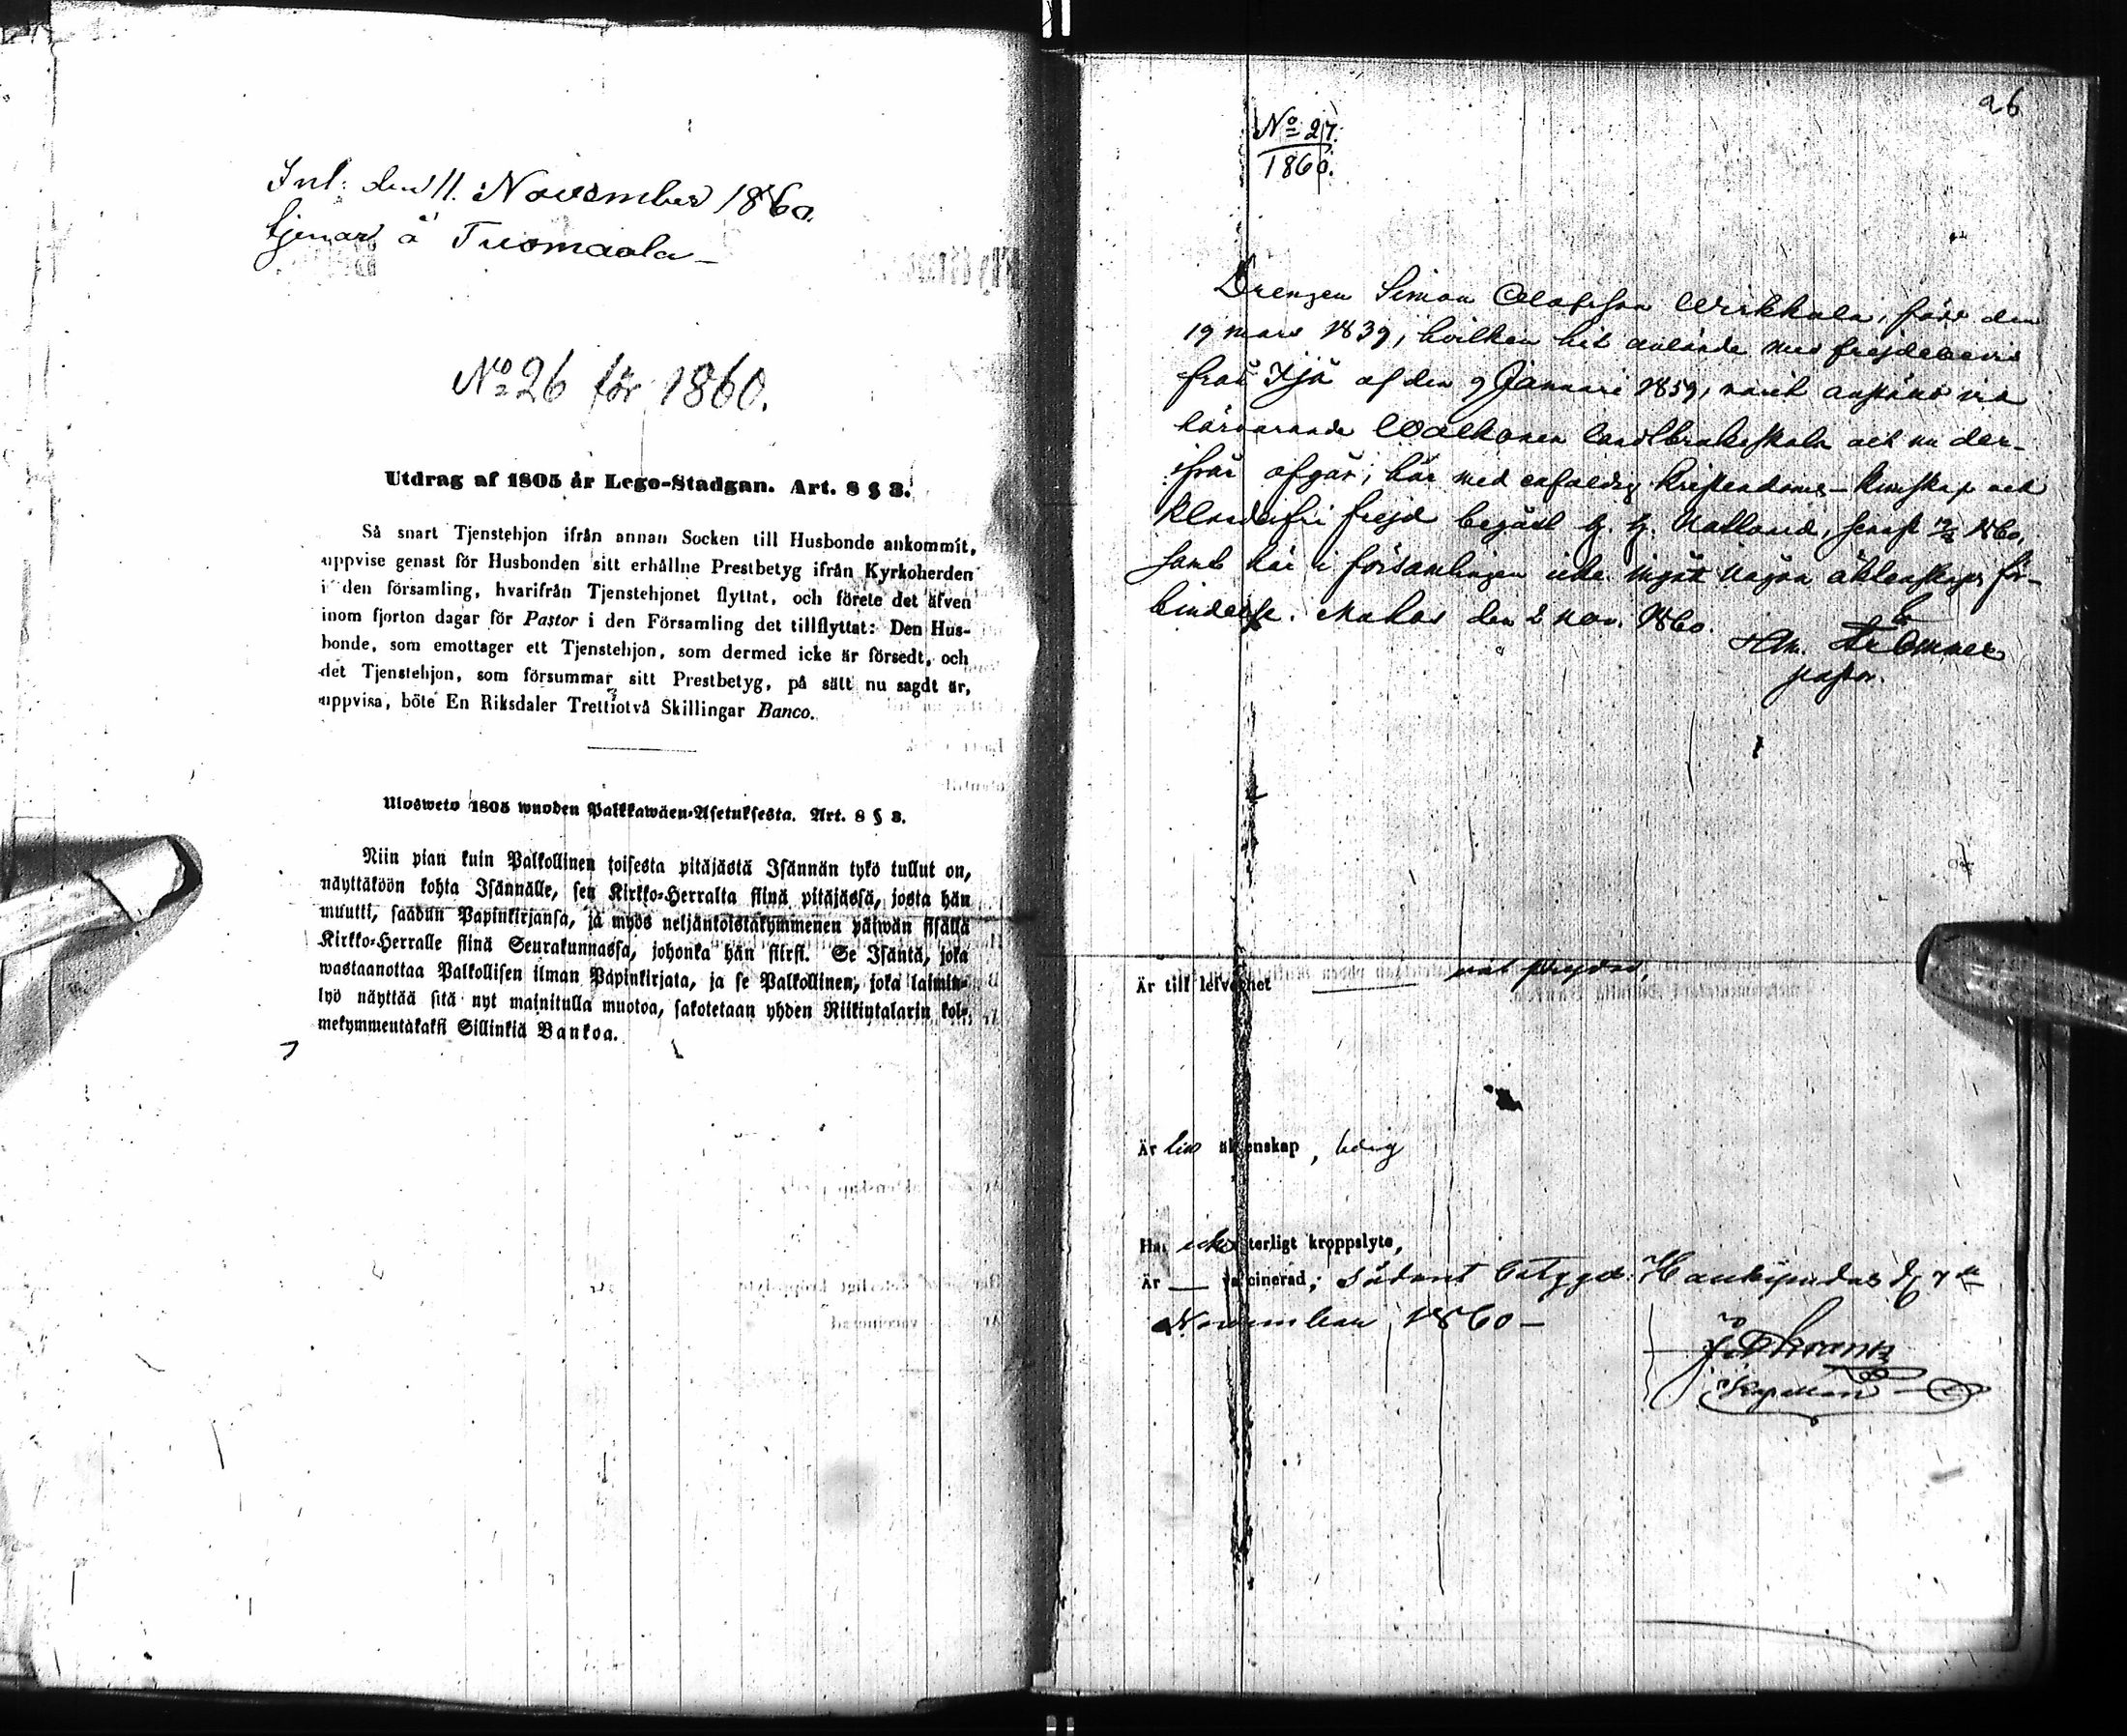 Inl. den 11. November 1860.
tjenar å Tuomaala
No 26 för 1860.
Utdrag af 1805 år Lego-Stadgan. Art. 8 § 3.
Så snart Tjenstehjon ifrån annan Socken till Husbonde ankommit,
uppvise genast för Husbonden sitt erhållne Prestbetyg ifrån Kyrkoherden
i den församling, hvarifrån Tjenstehjonet flyttat, och förete det äfven
inom fjorton dagar för Pastor i den Församling det tillflyttat: Den Hus-
bonde, som emottager ett Tjenstehjon, som dermed icke är försedt, och
det Tjenstehjon, som försummar sitt Prestbetyg, på sätt nu sagdt är,
uppvisa, böte En Riksdaler Trettiotvå Skillingar Banco.
Ulosweto 1805 wuoden Palkkawäen-Asetuksesta. Art. 8 § 3.
Niin pian kuin Palkollinen toisesta pitäjästä Isännän tykö tullut on,
näyttäköön kohta Isännälle, sen Kirkko-Herralta siinä pitäjässä, josta hän
muutti, saadun Papinkirjansa, ja myös neljäntoistakymmenen päiwän sisällä
Kirkko-Herralle siinä Seurakunnassa, johonka hän siirsi. Se Isäntä, joka
wastaanottaa Palkollisen ilman Papinkirjata, ja se Palkollinen, joka laimin-
lyö näyttää sitä nyt mainitulla muotoa, sakotetaan yhden Riikintalarin kol-
mekymmentäkaksi Sillinkiä Bankoa.
26
No 27.
1860.
Drengen Simon Olofsson Wirkkala, född den
19 mars 1839, hvilken hit anlände med frejdebevis
från Ijo af den 9 Januari 1859, varit anställd vid
härvarande landtbruksskola och nu der-
ifrån afgår; har med enfaldig kristendoms-kunskap och
klanderfri frejd begått H. H. Nattvard, senast 1860,
samt här i församlingen icke ingått någon äktenskaps för-
bindelse. den 2 Nov. 1860.
pastor.
Är till lefvernet
Är till äktenskap, ledig
Har icke terligt kroppslyte,
Är — vaccinerad; sådant betygar: Haukipudas d. 7
November 1860 —
Kapellan